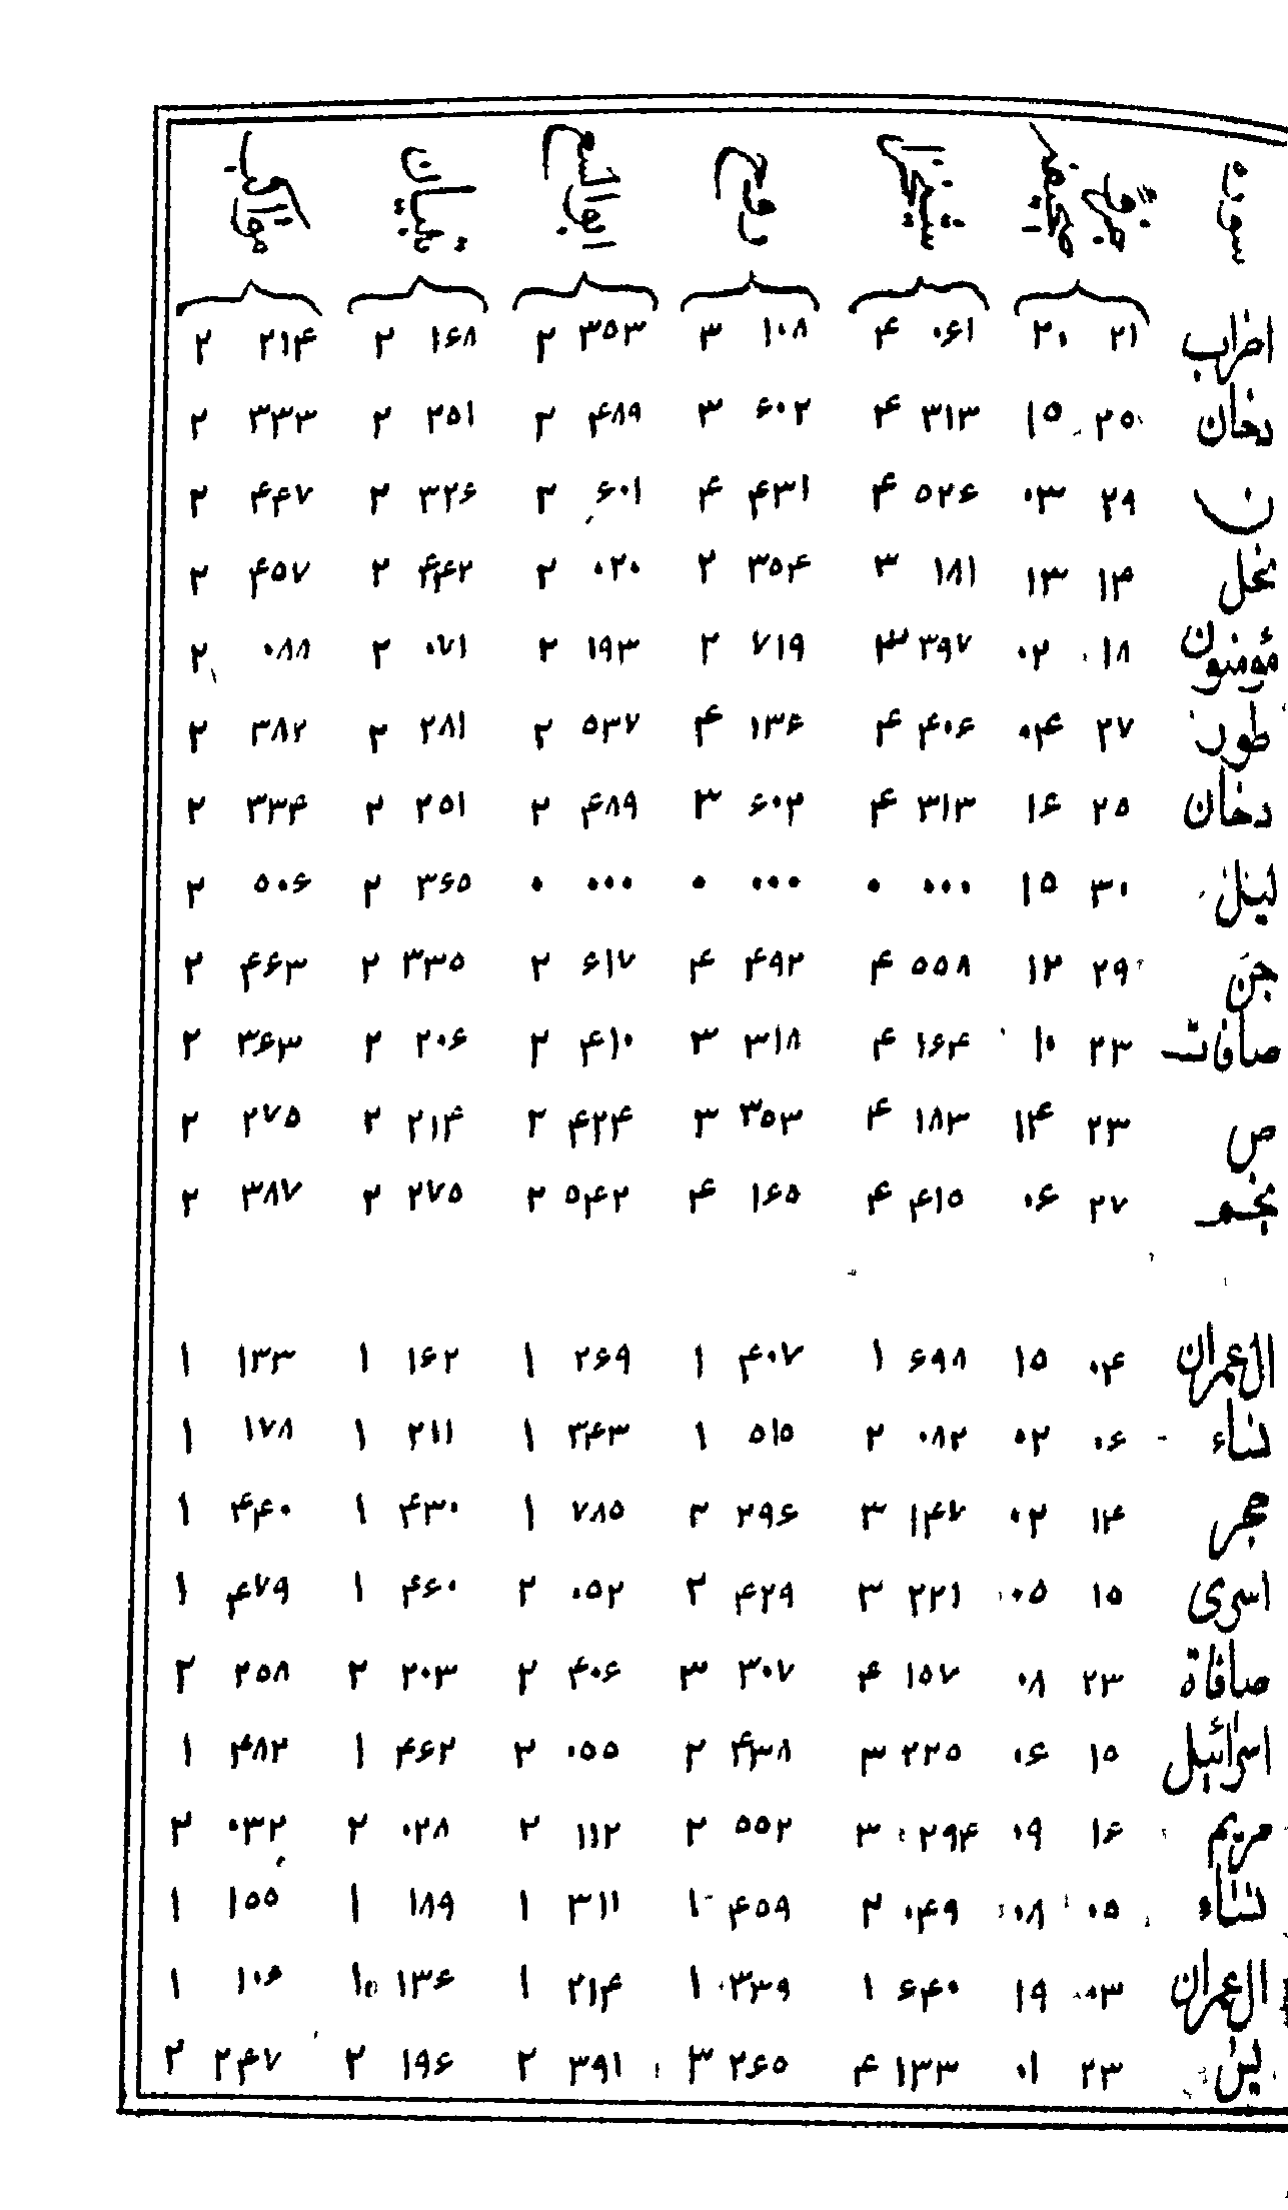 سوره جزو صحیفه شیخزاده روح ابو السعود تبیان مواکب
احزاب ۲۱ ۲۰ ۰۶۱ ۴ ۱۰۸ ۳ ۳۵۳ ۲ ۱۶۸ ۲ ۲۱۴ ۲
دخان ۲۵ ۱۵ ۳۱۳ ۴ ۶۰۲ ۳ ۴۸۹ ۲ ۲۵۱ ۲ ۳۳۳ ۲
ن ۲۹ ۰۳ ۵۲۶ ۴ ۴۳۱ ۴ ۶۰۱ ۲ ۳۲۶ ۲ ۴۴۷ ۲
نحل ۱۴ ۱۳ ۱۸۱ ۳ ۳۵۴ ۲ ۰۲۰ ۲ ۴۴۲ ۲ ۴۵۷ ۲
مؤمنون ۱۸ ۰۲ ۳۹۷ ۳ ۷۱۹ ۲ ۱۹۳ ۲ ۰۷۱ ۲ ۰۸۸ ۲
طور ۲۷ ۰۴ ۴۰۶ ۴ ۱۳۶ ۴ ۵۳۷ ۲ ۲۸۱ ۲ ۳۸۲ ۲
دخان ۲۵ ۱۶ ۳۱۳ ۴ ۶۰۲ ۳ ۴۸۹ ۲ ۲۵۱ ۲ ۳۳۴ ۲
لیل ۳۰ ۱۵ ۰۰۰ ۰ ۰۰۰ ۰ ۰۰۰ ۰ ۳۶۵ ۲ ۵۰۶ ۲
جن ۲۹ ۱۲ ۵۵۸ ۴ ۴۹۲ ۴ ۶۱۷ ۲ ۳۳۵ ۲ ۴۶۳ ۲
صافات ۲۳ ۱۰ ۱۶۴ ۴ ۳۱۸ ۳ ۴۱۰ ۲ ۲۰۶ ۲ ۳۶۳ ۲
ص ۲۳ ۱۴ ۱۸۳ ۴ ۳۵۳ ۳ ۴۲۴ ۲ ۲۱۴ ۲ ۲۷۵ ۲
نجم ۲۷ ۰۶ ۴۱۵ ۴ ۱۶۵ ۴ ۵۴۲ ۲ ۲۷۵ ۲ ۳۸۷ ۲
ال عمران ۰۴ ۱۵ ۶۹۸ ۱ ۴۰۷ ۱ ۲۶۹ ۱ ۱۶۲ ۱ ۱۳۳ ۱
نساء ۰۶ ۰۲ ۰۸۲ ۲ ۵۱۵ ۱ ۳۴۳ ۱ ۲۱۱ ۱ ۱۷۸ ۱
حجر ۱۴ ۰۲ ۱۴۷ ۳ ۲۹۶ ۲ ۷۸۵ ۱ ۴۳۰ ۱ ۴۴۰ ۱
اسری ۱۵ ۰۵ ۲۲۱ ۳ ۴۲۹ ۲ ۰۵۲ ۲ ۴۶۰ ۱ ۴۷۹ ۱
صافاة ۲۳ ۰۸ ۱۵۷ ۴ ۳۰۷ ۳ ۴۰۶ ۲ ۲۰۳ ۲ ۲۵۸ ۲
اسرائیل ۱۵ ۰۶ ۲۲۵ ۳ ۴۳۸ ۲ ۰۵۵ ۲ ۴۶۲ ۱ ۴۸۲ ۱
مریم ۱۶ ۰۹ ۲۹۴ ۳ ۵۵۲ ۲ ۱۱۲ ۲ ۰۲۸ ۲ ۰۳۲ ۲
نساء ۰۵ ۰۸ ۰۴۹ ۲ ۴۵۹ ۱ ۳۱۱ ۱ ۱۸۹ ۱ ۱۵۵ ۱
ال عمران ۰۳ ۱۹ ۶۴۰ ۱ ۳۳۹ ۱ ۲۱۴ ۱ ۱۳۶ ۱ ۱۰۶ ۱
یس ۲۳ ۰۱ ۱۳۳ ۴ ۲۶۵ ۳ ۳۹۱ ۲ ۱۹۶ ۲ ۲۴۷ ۲